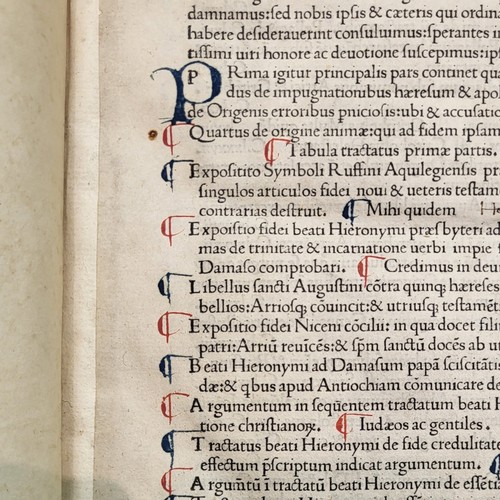 damnamus:sed nobis ipsis & cæteris qui ordin
habere desiderauerint consuluimus:sperantes in
tissimi uiri honore ac deuotione suscepimus:ips
P Rima igitur principalis pars continet qua
dus de impugnationibus hæresum & apol
de Origenis erroribus pniciosis:ubi & accusatio
¶ Quartus de origine animæ:qui ad fidem ipsam
¶ Tabula tractatus primæ partis.
¶ Expositito Symboli Ruffini Aquilegiensis pr
singulos articulos fidei noui & ueteris testam
contrarias destruit. ¶ Mihi quidem He
¶ Expoistio fidei beati Hieronymi præsbyteri ad
mas de trinitate & incarnatione uerbi impie s
Damaso comprobari. ¶ Credimus in deu
¶ Libellus sancti Augustini cōtra quinq; hæreses
bellios:Arriosq; cōuincit:& utriusq; testamēt
¶ Expositio fidei Niceni cōcilii: in qua docet filiu
patri:Arriū reuīcēs:& spm̄ sanctū docēs ab ut
¶ Beati Hieronymi ad Damasum papā sciscitātis
dæ:& qbus apud Antiochiam cōmunicare de
¶ Argumentum in seqūentem tractatum beati H
tione christianoꝝ. ¶ Iudæos ac gentiles.
¶ Tractatus beati Hieronymi de fide credulitate
effectum p̄scriptum indicat argumentum.
¶ Argum̄tū ī tractatū beati Hieronymi de essētia